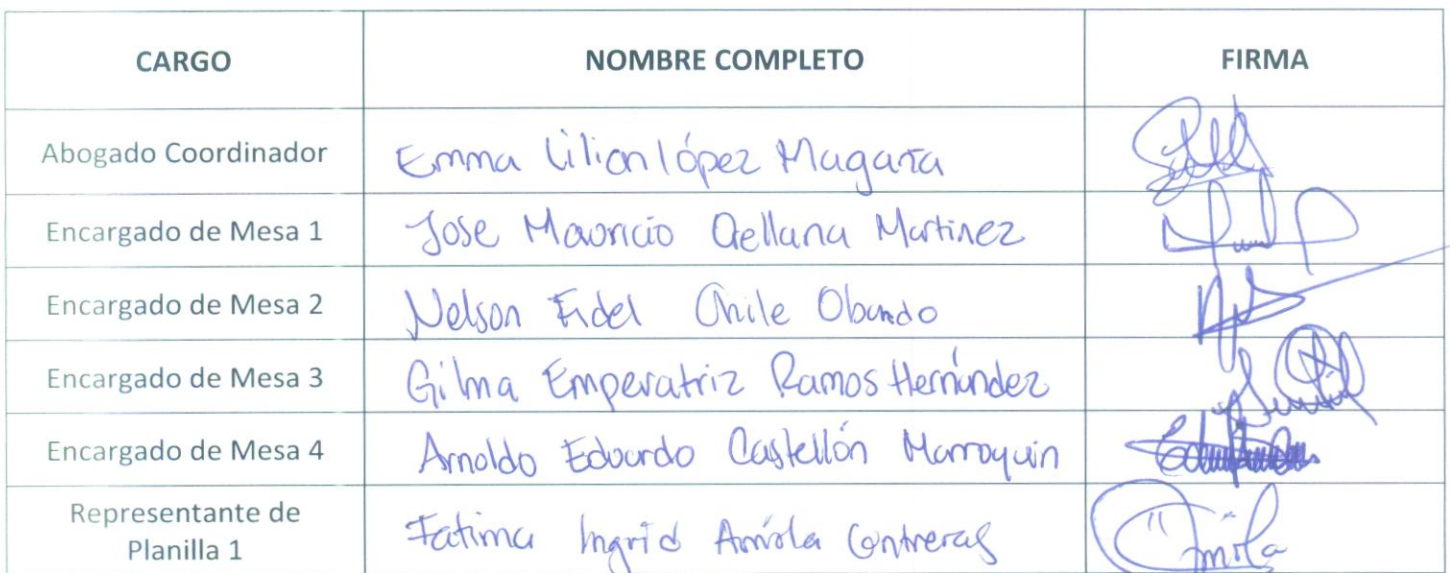 CARGO NOMBRE COMPLETO FIRMA
Abogado Coordinador Emma Lilian López Magaña
Encargado de Mesa 1 Jose Mauricio Orellana Martinez
Encargado de Mesa 2 Nelson Fidel Chile Obando
Encargado de Mesa 3 Gilma Emperatriz Ramos Hernández
Encargado de Mesa 4 Arnoldo Eduardo Castellón Marroquin
Representante de
Planilla 1 Fatima Ingrid Contreras